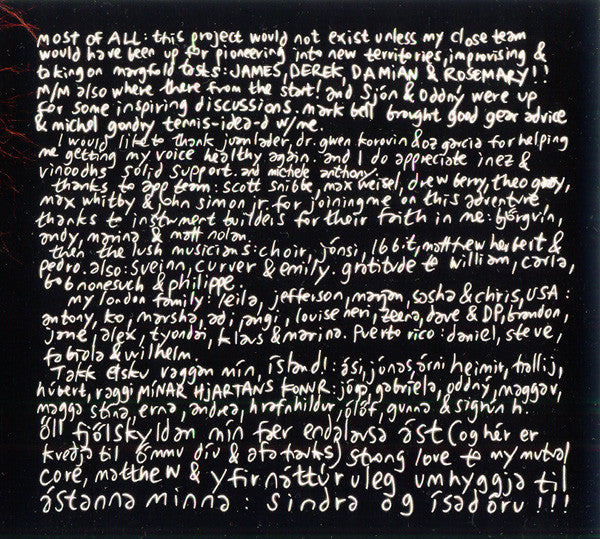 most of ALL: this project would not exist unless my close team
would have been up for pioneering into new territories, improvising &
taking on margfold tasts: JAMES, DEREK, DAMIAN & ROSEMARY!!
M/M also where there from the start! and Sjón & Oddný were up
for some inspiring discussions. mark bell brought good gear advice
& michel gondry tennis-idea-d w/me.
I would like to thank juan lader, dr. gwen korovin & oz garcia for helping
me getting my voice healthy again. and I do appreciate inez &
vinoodhs solid support. and michele anthony.
thanks to app team: scott snibbe, max weisel, drew berry, theo gray,
max whitby & john simon jr. for joining me on this adventure,
thanks to instrument builders for their faith in me: björgvin,
andy, marina & matt nolan.
then the lush musicians: choir, jónsi, 16bit, matthew herbert &
pedro. also: sveinn, curver & emily. gratitude to william, carla,
bob nonesuch & philippe.
my london family: leila, jefferson, marjan, sasha & chris, USA:
antony, ko, marsha, adi, jangi, louise neri, zeena, dave & DP, brandon,
jane, alex, tyondai, klaus & marina. Puerto rico: daniel, steve,
fabiola & wilhelm.
Takk elsku vaggan mín, ísland!: ási, jónas, árni heimir, tallij,
húbert, raggi MÍNAR HJARTANS KONUR: jóga, gabríela, oddný, maggav,
magga stína, erna, andrea, hrafnhildur, jólóf, gunna & sigrún h..
öll fjölskyldan mín fær endalausa ást (og hér er
kveðja til ömmu dív & afa hauks) strong love to my mutual
core, matthew & yfirnáttúruleg umhyggja til
ástanna minna: sindra og ísadóru!!!